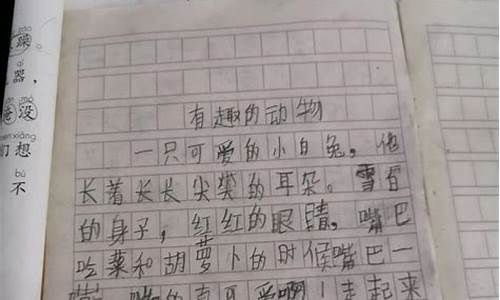 躁
器，
没
们想
bù
不
有趣的动物
一只可爱的小白兔，他
长着长长尖尖的耳朵。雪白
的身子，红红的眼睛，嘴巴
吃菜和胡萝卜的时候嘴巴一
嘴 的真可爱啊！走起来